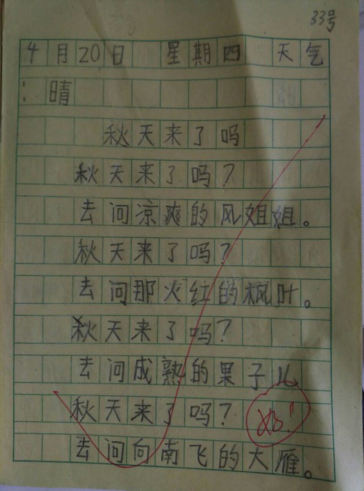 33号
4月20日 星期四 天气
:晴
秋天来了吗
秋天来了吗?
去问凉爽的风姐姐。
秋天来了吗?
去问那火红的枫叶。
秋天来了吗?
去问成熟的果子儿
秋天来了吗?
好!
去问向南飞的大雁。